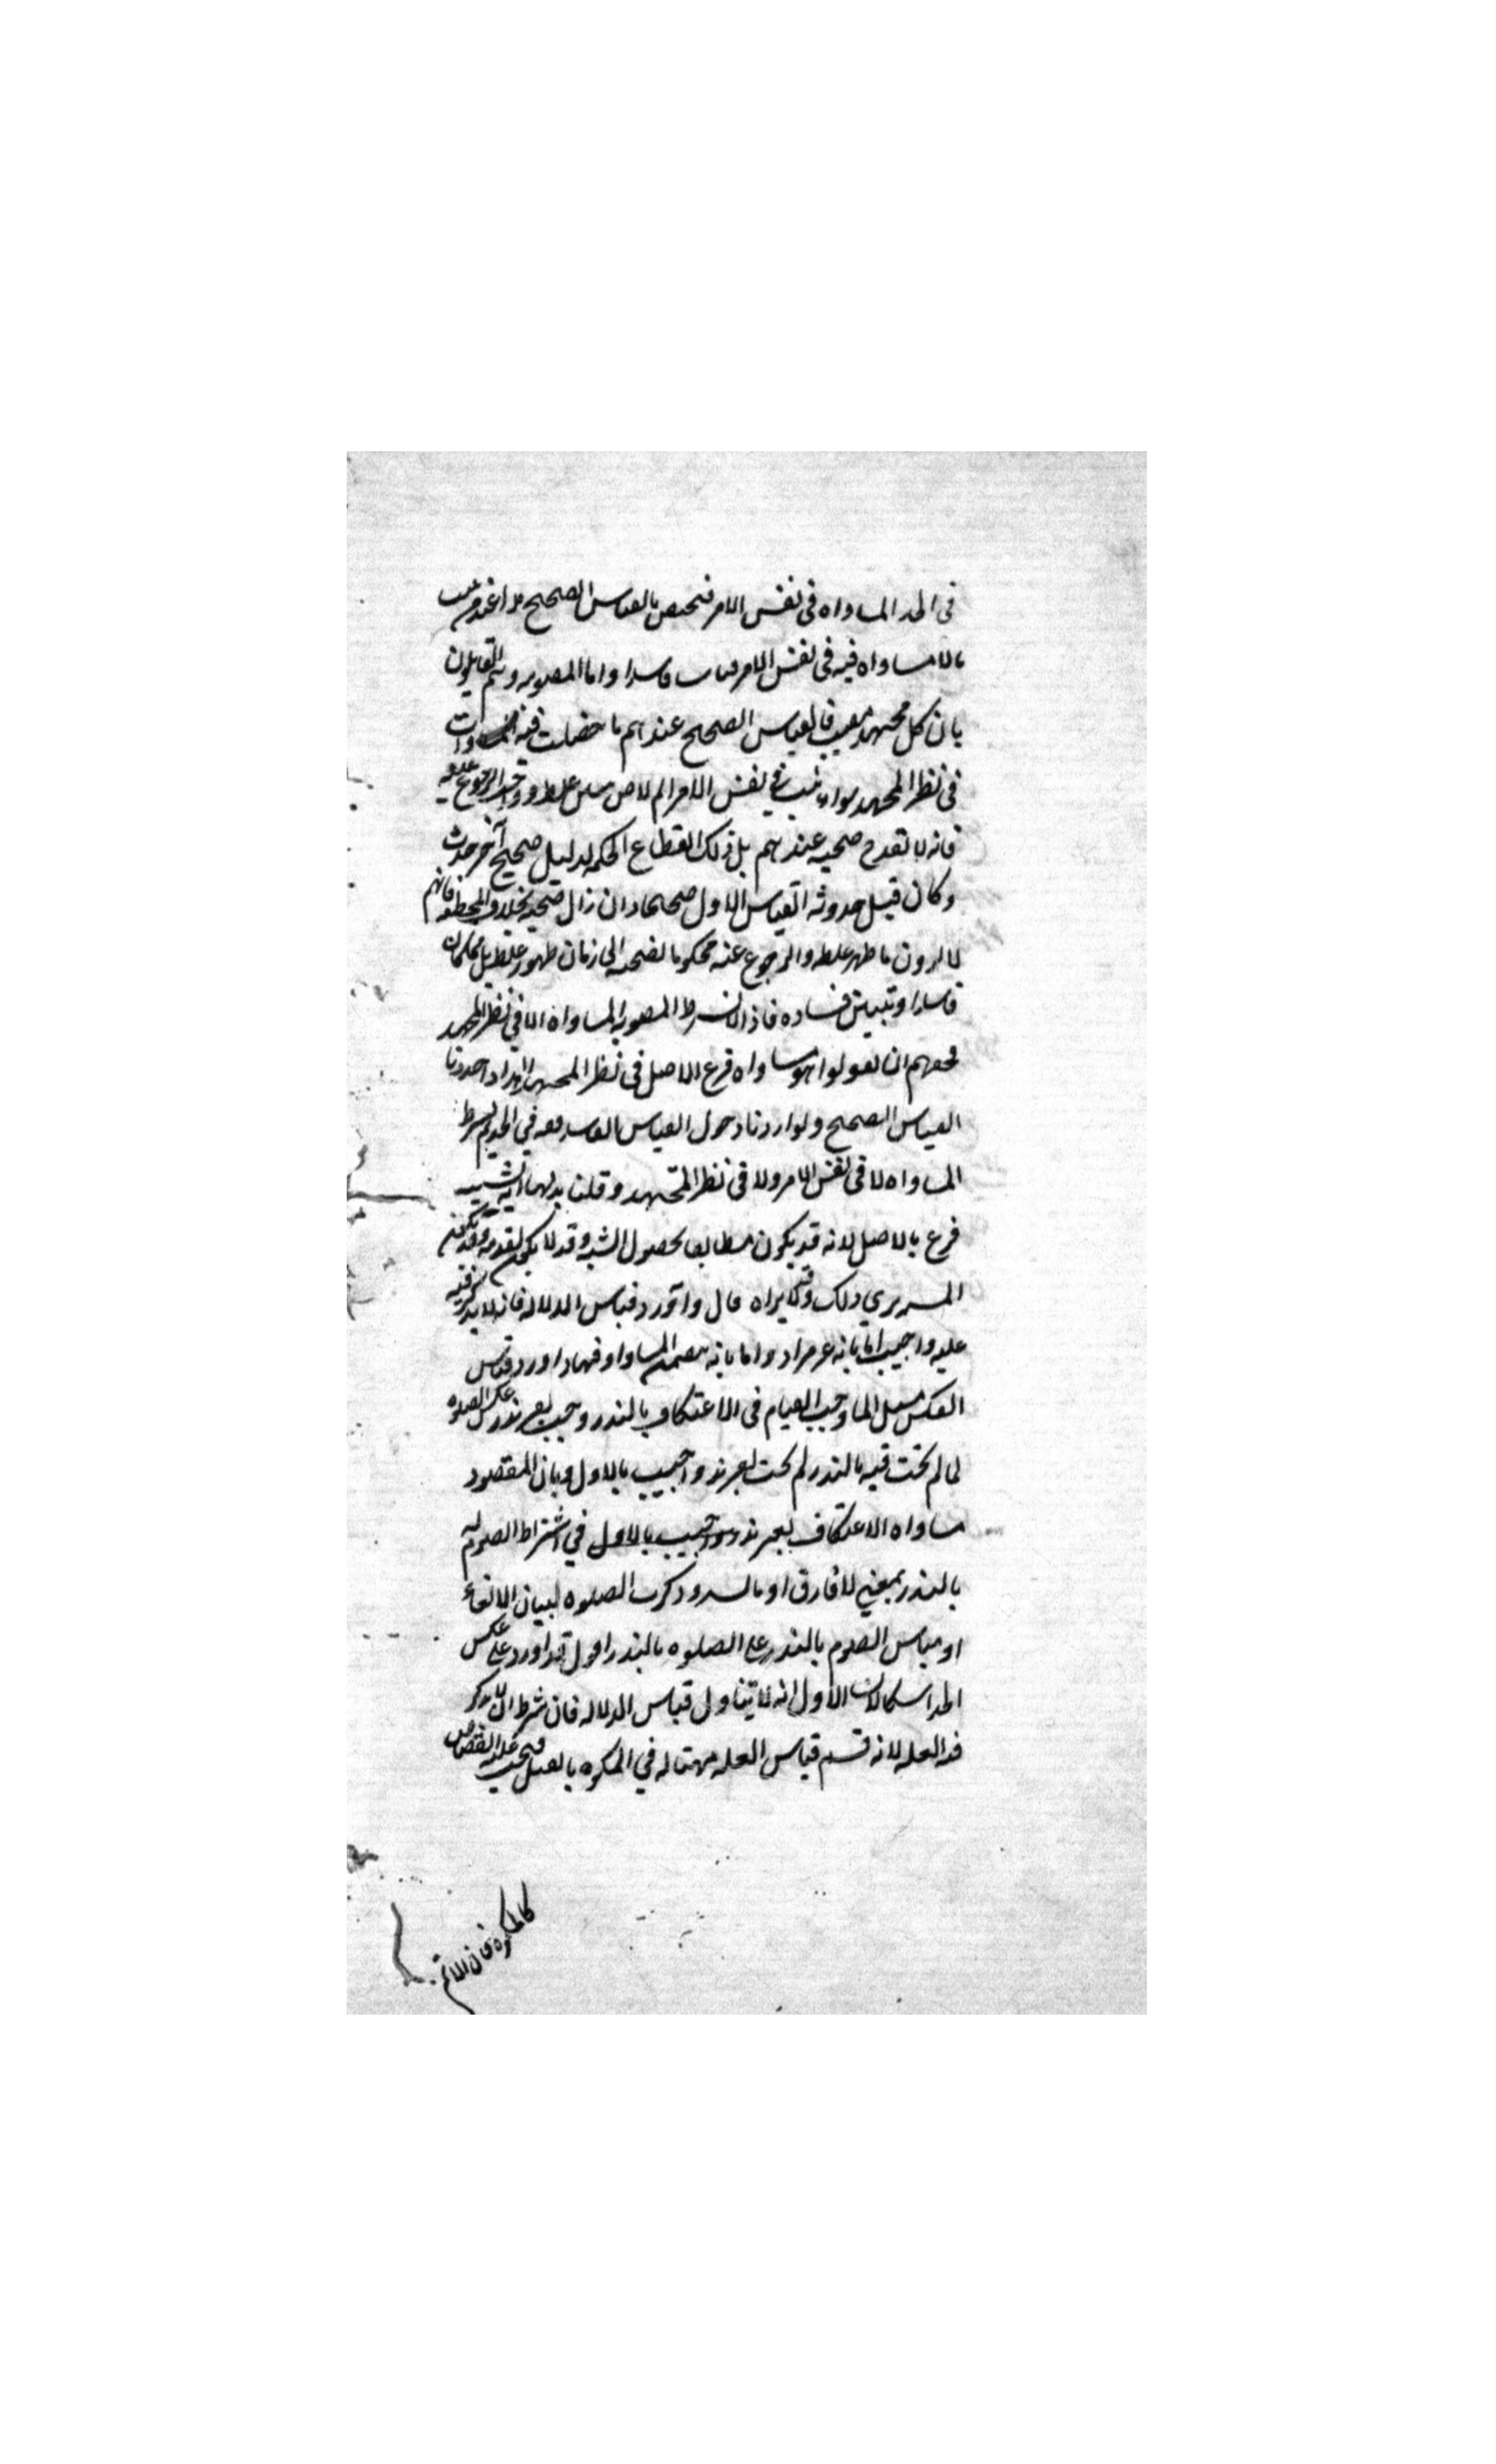 في الحد المساواه في نفس الامر فيختص بالقياس الصحيح هذا عند من يثبت
ما لا مساواه فيه في نفس الامر قياسا فاسدا واما المصوبه وهم القايلون
بان كل مجتهد مصيب فالقياس الصحيح عندهم ما حصلت فيه المساوات
في نظر المجتهد سواء ثبت في نفس الامر ام لا حتى لو تبين غلطه ووجب الرجوع عنه
فانه لا يقدح في صحته عندهم بل ذلك انقطاع لحكمه لدليل صحيح آخر حدث
وكان قبل حدوثه القياس الاول صحيحا وان زال صحته بخلاف المخطئه فانهم
لا يرون ما ظهر غلطه والرجوع عنه محكوما بصحته الى زمان ظهور غلطه بل مما كان
فاسدا وتبين فساده فاذا لا نشرط المصوبه المساواه الا في نظر المجتهد
فحقهم ان يقولوا هو مساواه فرع الاصل في نظر المجتهد هذا اذا حددنا
القياس الصحيح ولو اردنا دخول القياس الفاسد معه في الحد لم نشرط
المساواه لا في نفس الامر ولا في نظر المجتهد وقلنا بدلها انه تشبيه
فرع بالاصل لانه قد يكون مطابقا لحصول الشبه وقد لا يكون لعدمه وقد يكون
المشبه يرى ذلك وقد لا يراه قال واورد قياس الدلاله فانه لا يذكر فيه
عله واجيب اما بانه غير مراد واما بانه يتضمن المساواه فيها واورد قياس
العكس مثل لما وجب الصيام في الاعتكاف بالنذر وجب بغير نذر عكس الصلوه
لما لم تجب فيه بالنذر لم تجب بغير نذر واجيب بالاول وبان المقصود
مساواه الاعتكاف بغير نذر واجيب بالاول في اشتراط الصوم له
بالنذر بمعنى لا فارق او بالسبر وذكرت الصلوه لبيان الالغاء
او قياس الصوم بالنذر على الصلوه بالنذر اقول قد اورد على عكس
الحد اشكالان الاول انه لا يتناول قياس الدلاله فان شرط ان لا يذكر
فيه العله لانه قسيم قياس العله مثاله في المكره بالقتل فيجب عليه القصاص
كالمكره فان الاثم